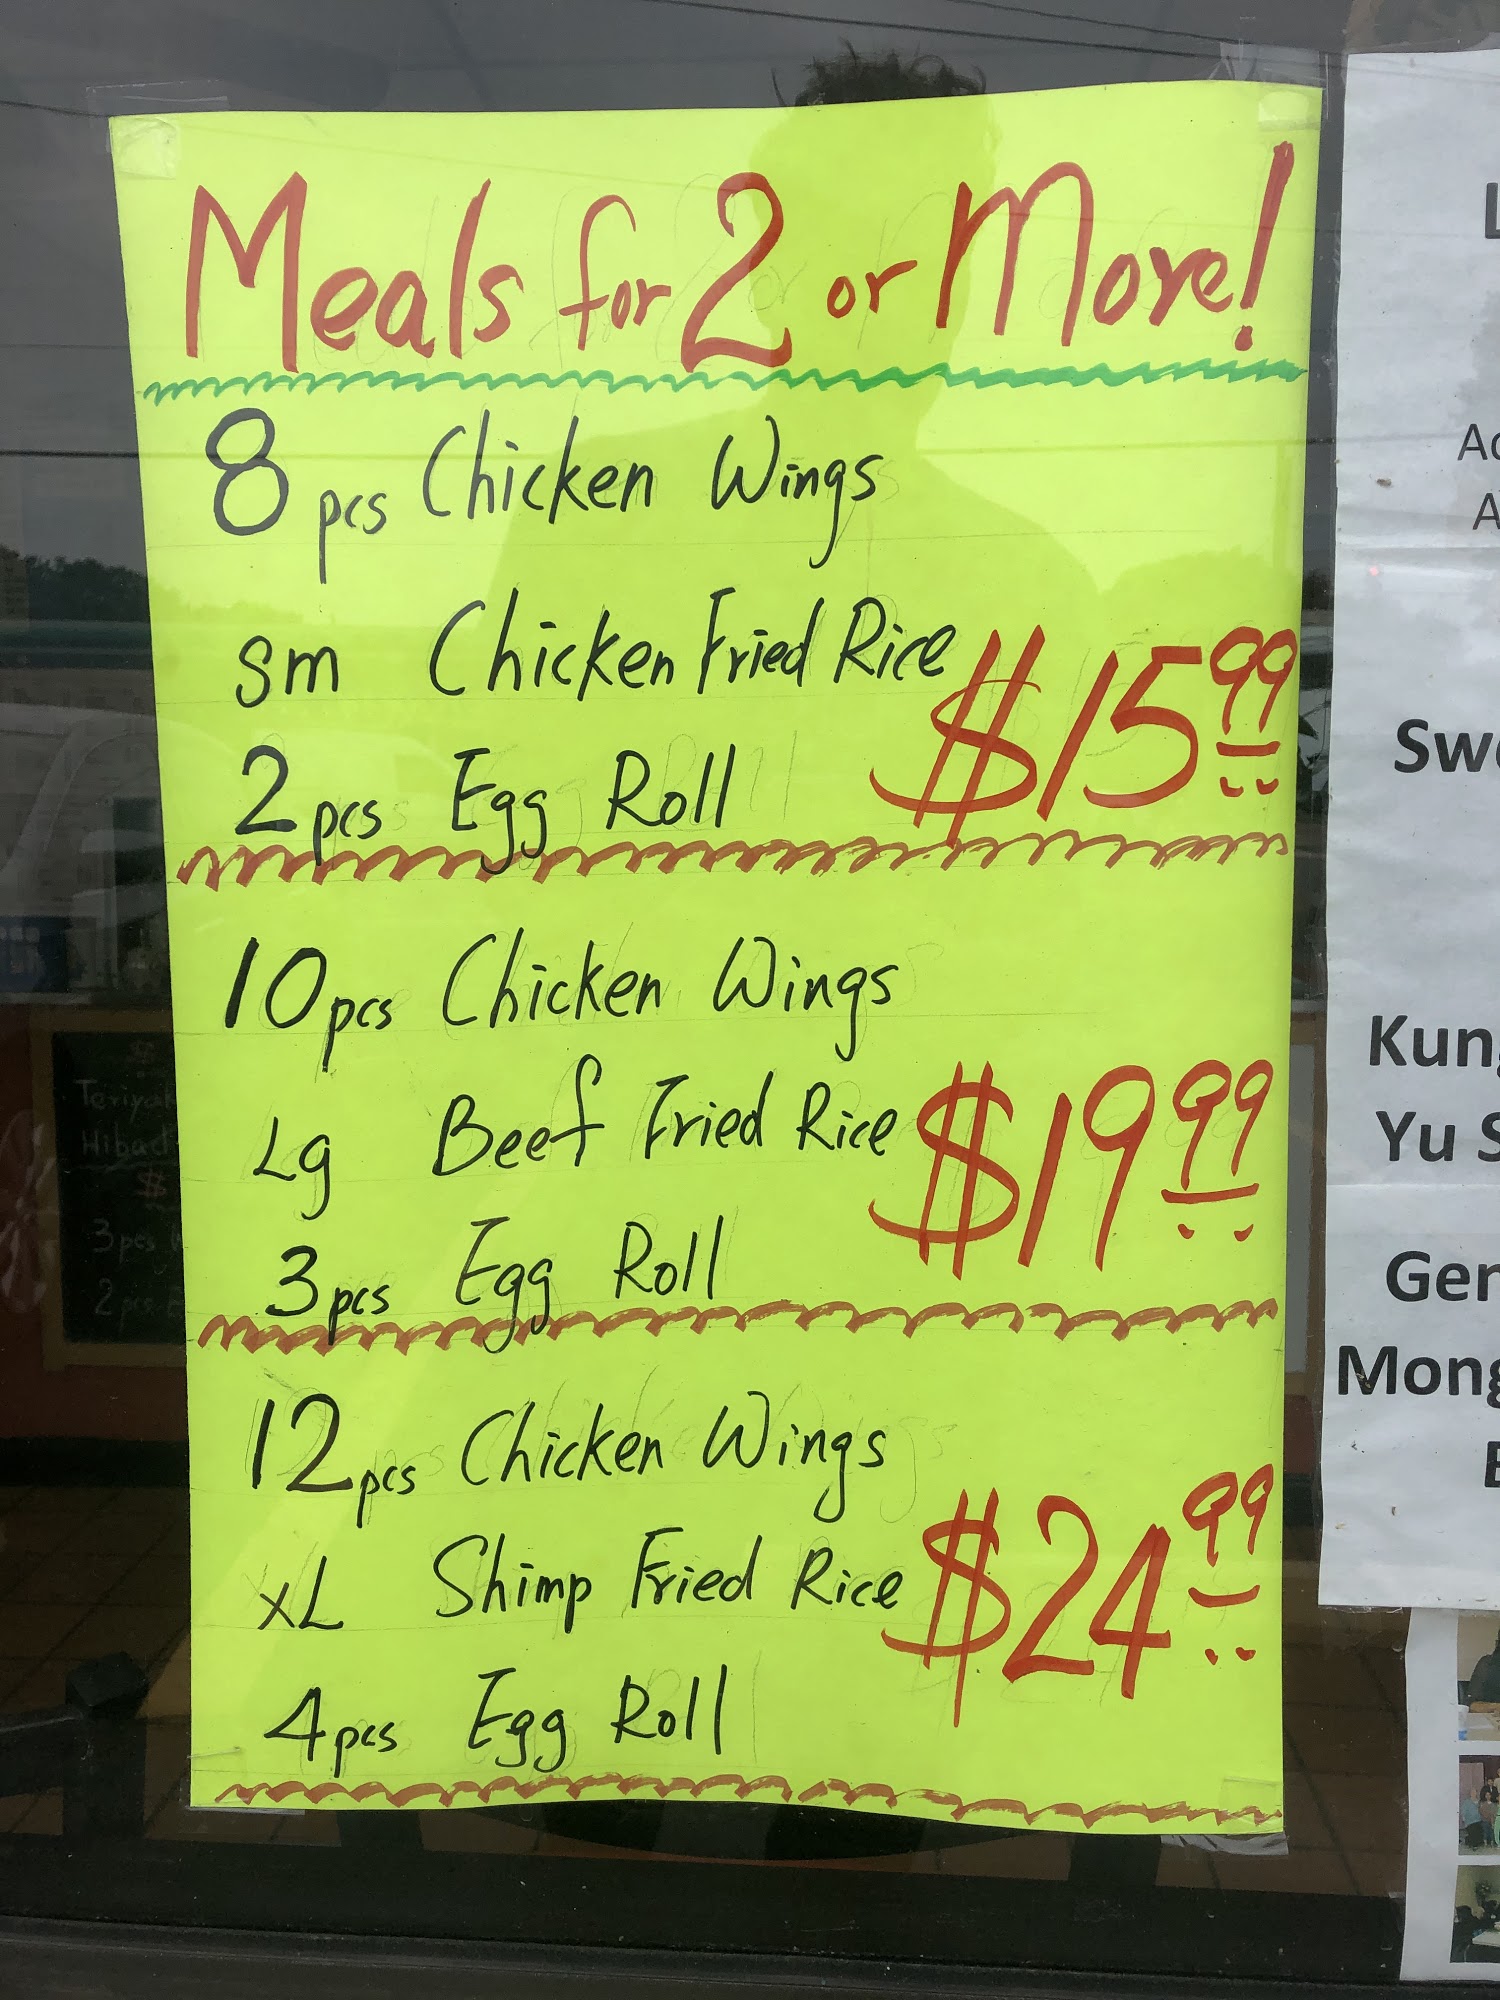 Meals for 2 or More!
8 pcs Chicken Wings
sm Chicken Fried Rice
$15.99
2 pcs Egg Roll
10 pcs Chicken Wings
Lg Beef Fried Rice
$19.99
3 pcs Egg Roll
12 pcs Chicken Wings
XL Shimp Fried Rice
$24.99
4 pcs Egg Roll
L
Ac
A
Swe
Kung
Yu S
Gen
Mong
Teriyak
Hibach
$
3 pcs
2 pcs E